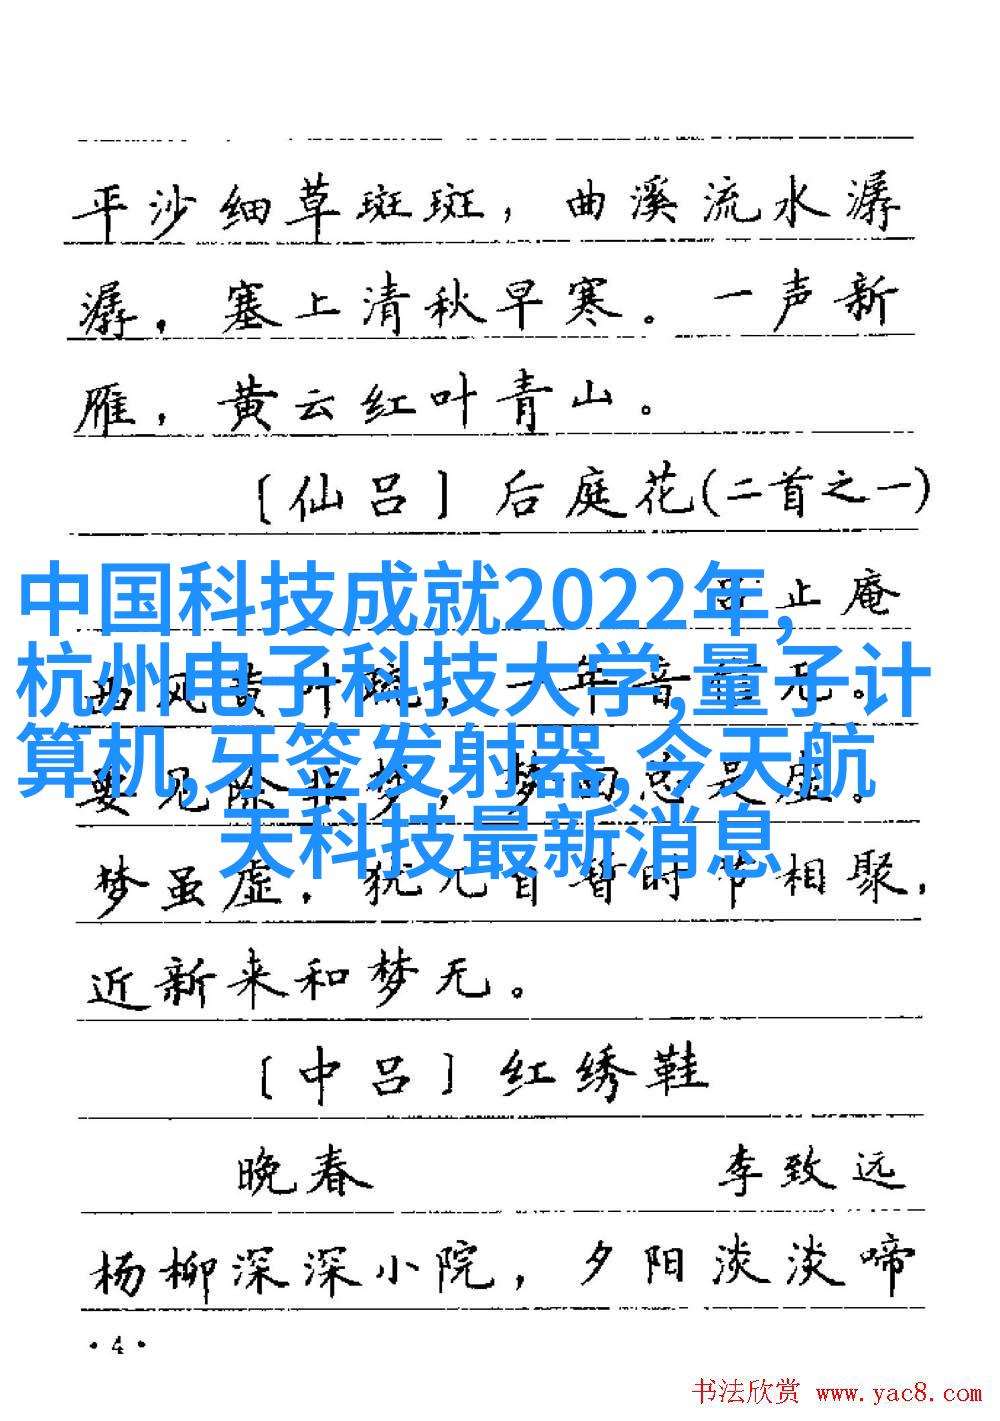 平沙细草斑斑，曲溪流水潺
潺，塞上清秋早寒。一声新
雁，黄云红叶青山。
〔仙吕〕后庭花(二首之一)
中国科技成就2022年,
吕止庵
杭州电子科技大学,量子计
西风黄叶疏，一年音信无。
算机,牙签发射器,今天航
要见除非梦，梦回总是虚。
天科技最新消息
梦虽虚，犹兀自暂时节相聚，
近新来和梦无。
〔中吕〕红绣鞋
晚春 李致远
杨柳深深小院，夕阳淡淡啼
·4·
书法欣赏 www.yac8.com